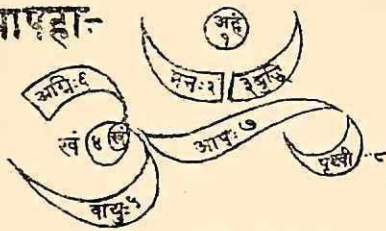 अहं १
मनः २ ३ बुद्धि
अग्निः ६
खं ४ खं
आपः ७
पृथ्वी ८
वायुः ५